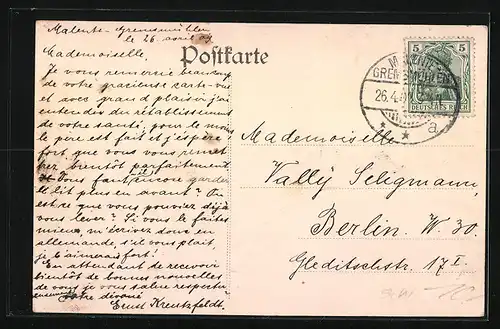 Malente-Gremsmühlen
le 26. avril 09
Mademoiselle,
Je vous remercie beaucoup
de votre gracieuse carte-vue
et avec grand plaisir j'ai
entendu du rétablissement
de votre santé; pour le moins
le père est fait et j'espère
fort que vous vous remet-
trez bientôt parfaitement
Vous faut(-il) encore garder
le lit plus en avant? Ou
est-ce que vous pouviez déjà
vous lever? Si vous le faites
mieux, m'écrivez donc en
allemande, s'il vous plaît,
je l'aimerais fort!
En attendant de recevoir
bientôt de bonnes nouvelles
de vous je vous salue respectu-
Votre dévoué
Ernst Kreutzfeldt.
Postkarte
GREMSMÜHLEN
26.4.
a
5 5
DEUTSCHES REICH
Mademoiselle
Vally Seligmann,
Berlin. W. 30.
Gleditschstr. 17 I.